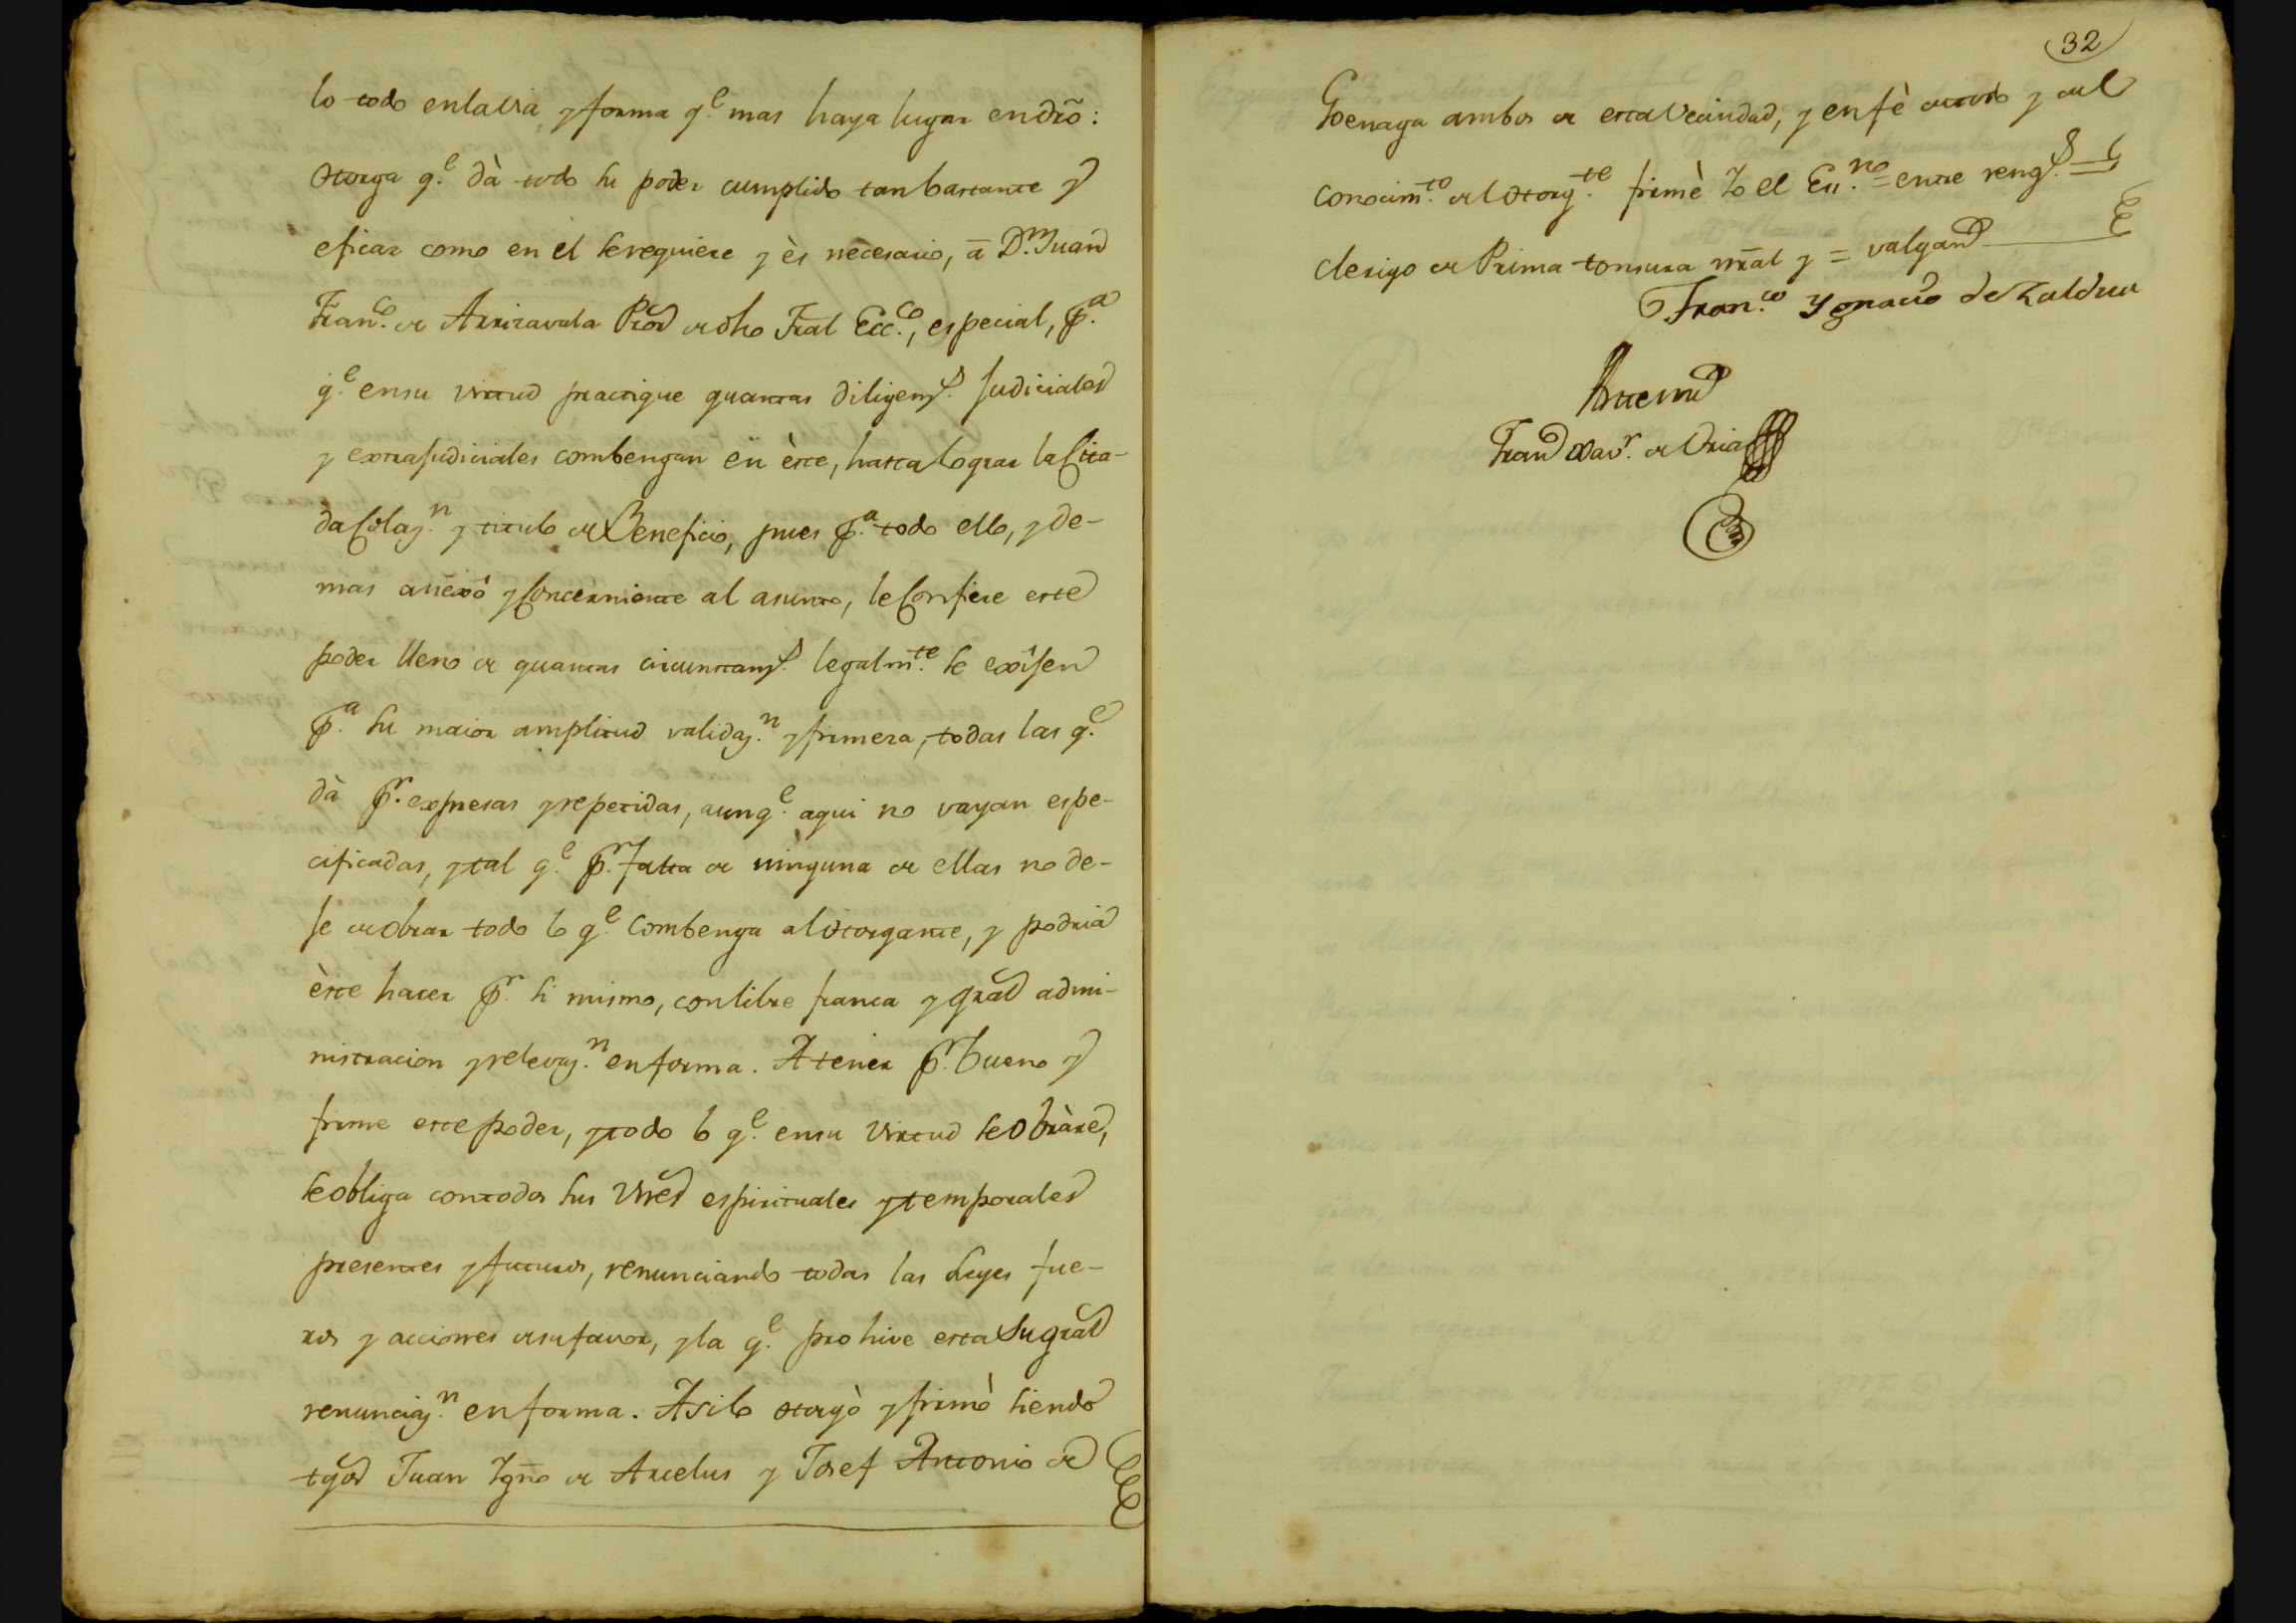 lo todo en la via y forma q.e mas haya lugar en dr̃o:
otorga q.e dà todo su poder cumplido tan bastante y
eficaz como en el se requiere y ès necesario, à D.n Juan
Fran.co de Arrizavala Pror̃ de dho Tral Ecc.co, especial, p.a
q.e en su virtud practique quantas diligenz.s Judiciales
y extrajudiciales combengan en èste, hasta lograr la Cita-
da Colaz.n y titulo de Beneficio, pues p.a todo ello, y de-
mas anexo y Concerniente al asunto, le Confiere este
poder lleno de quantas circunstanz.s legalm.te se exijen
p.a su maior amplitud validaz.n y firmeza, todas las q.e
dà p.r expresas y repetidas, aunq.e aqui no vayan espe-
cificadas, y tal q.e p.r falta de ninguna de ellas no de-
je de obrar todo lo q.e combenga al otorgante, y podria
èste hacer p.r si mismo, con libre franca y gral admi-
nistracion y relevaz.n en forma. A tener p.r bueno y
firme este poder, y todo lo q.e en su virtud se obràre,
se obliga con todos sus Vnes espirituales y temporales
presentes y futuros, renunciando todas las Leyes fue-
ros y acciones de su favor, y la q.e prohive esta Su gral
renunciaz.n en forma. Asi lo otorgò y firmò siendo
tgos Juan Ygno de Arcelus y Josef Antonio de
32
Goenaga ambos de esta Vecindad, y en fè de todo y del
conocim.to del otorg.te firmè Yo el Es.no = entre reng.s =
clerigo de Prima tonsura nral y = valgan
Fran.co Ygnacio de Zaldua
Antemi
Fran Xav.r de Oria